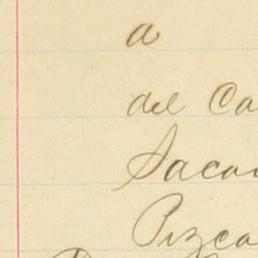 a
del Ca
Saca
Pizca